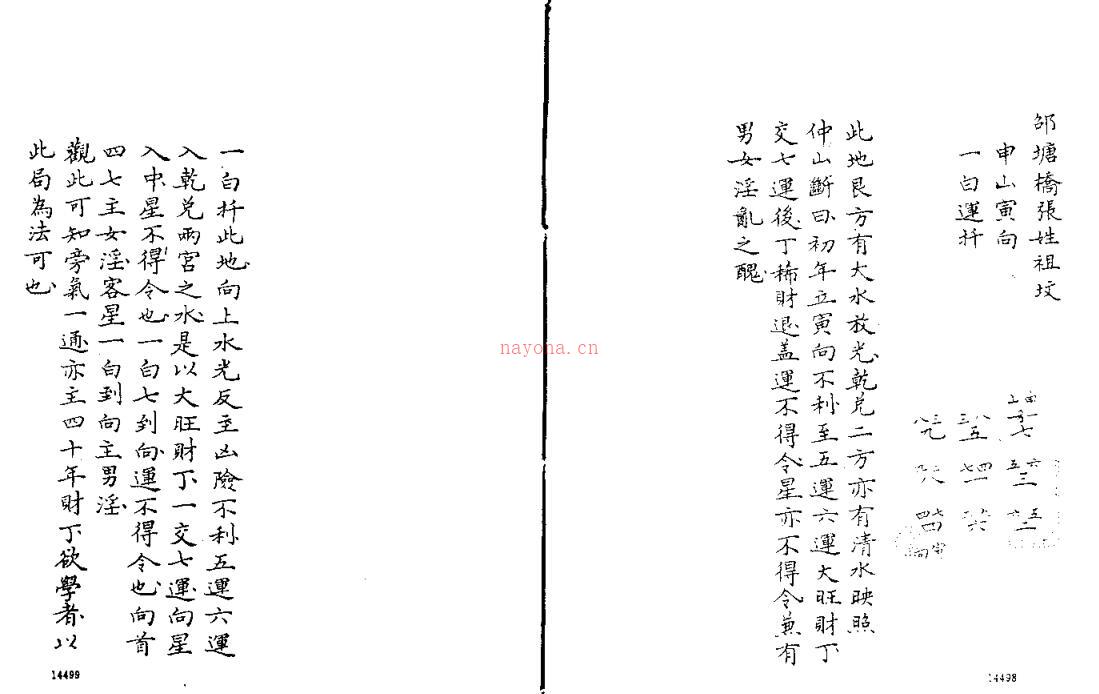 邵塘橋張姓祖坟
申山寅向
一白運扦
此地艮方有大水放光乾兑二方亦有清水映照
仲山斷曰初年立寅向不利至五運六運大旺財丁
交七運後丁稀財退盖運不得令星亦不得令兼有
男女淫亂之醜
14498
一白扦此地向上水光反主凶險不利五運六運
入乾兑兩宮之水是以大旺財丁一交七運向星
入中星不得令也一白七到向運不得令也向首
四七主女淫客星一白到向主男淫
觀此可知旁氣一通亦主四十年財丁欲學者以
此局為法可也
14499
nayona.cn